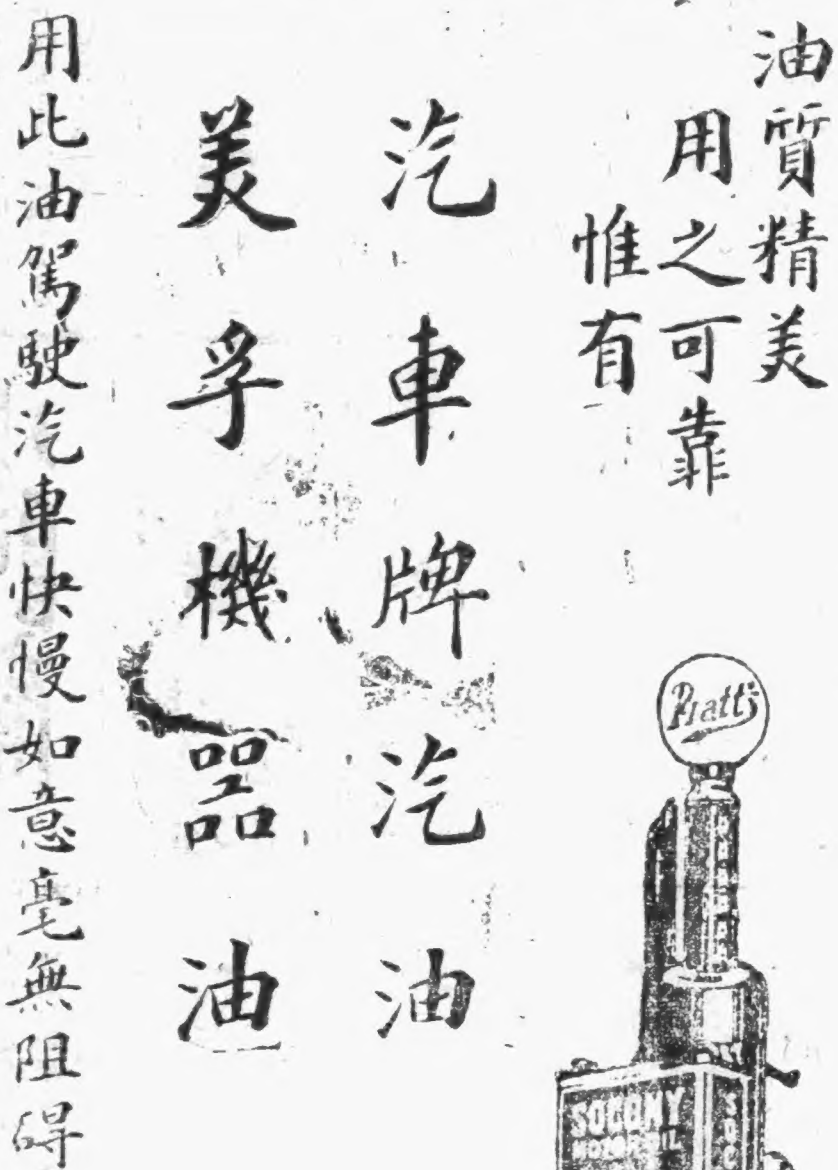 油質精美
用之可靠
惟有
汽車牌汽油
美孚機器油
用此油駕駛汽車快慢如意毫無阻碍
Pratt's
SOCONY
MOTOR OIL
SOC